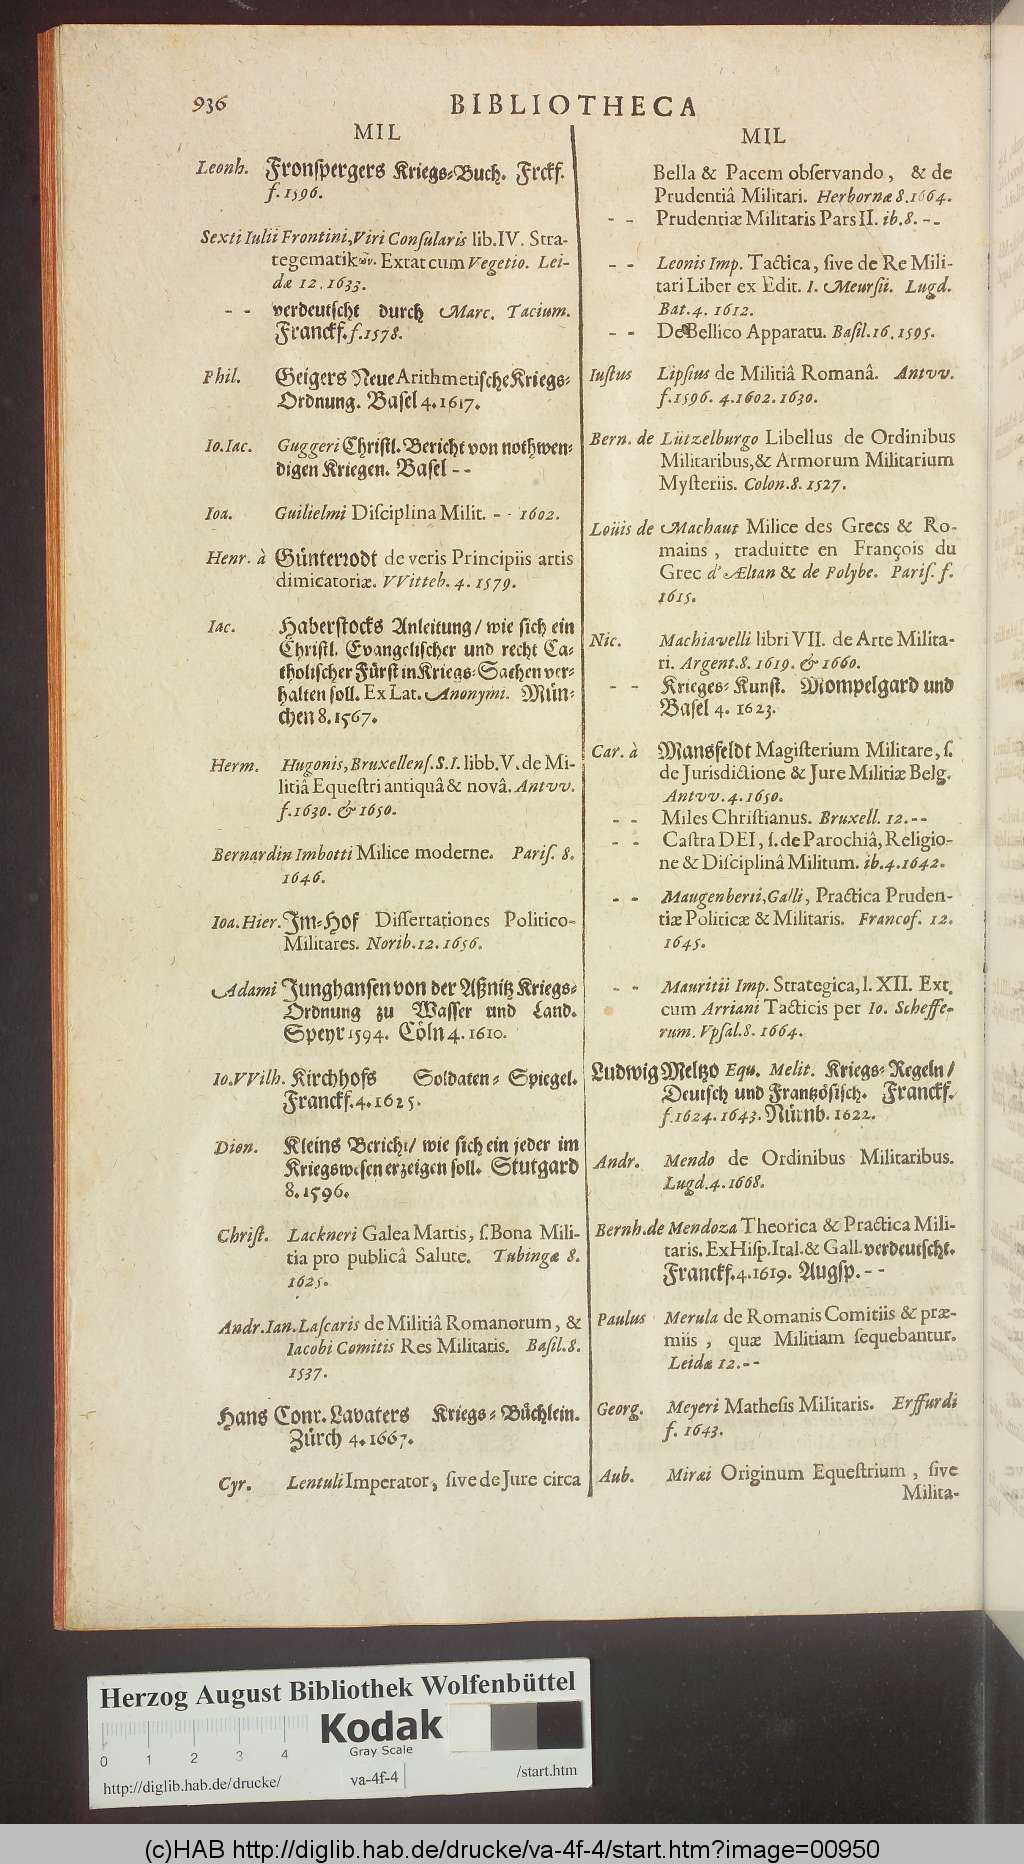 936
BIBLIOTHECA
MIL
Leonh. Fronſpergers Kriegs-Buch. Frckf.
f. 1596.
Sexti Iulii Frontini, Viri Conſularis lib. IV. Stra-
tegematikῶν. Extat cum Vegetio. Lei-
dæ 12. 1633.
- - verdeutſcht durch Marc. Tacium.
Franckf. f. 1578.
Phil. Geigers Neue Arithmetiſche Kriegs-
Ordnung. Baſel 4. 1617.
Io. Iac. Guggeri Chriſtl. Bericht von nothwen-
digen Kriegen. Baſel - -
Ioa. Guilielmi Diſciplina Milit. - - 1602.
Henr. à Günterrodt de veris Principiis artis
dimicatoriæ. VVitteb. 4. 1579.
Iac. Haberſtocks Anleitung / wie ſich ein
Chriſtl. Evangeliſcher und recht Ca-
tholiſcher Fürſt in Kriegs-Sachen ver-
halten ſoll. Ex Lat. Anonymi. Mün-
chen 8. 1567.
Herm. Hugonis, Bruxellenſ. S. I. libb. V. de Mi-
litiâ Equeſtri antiquâ & novâ. Antvv.
f. 1630. & 1650.
Bernardin Imbotti Milice moderne. Pariſ. 8.
1646.
Ioa. Hier. Im-Hof Diſſertationes Politico-
Militares. Norib. 12. 1656.
Adami Junghanſen von der Aßnitz Kriegs-
Ordnung zu Waſſer und Land.
Speyr 1594. Cöln 4. 1610.
Io. VVilh. Kirchhofs Soldaten-Spiegel.
Franckf. 4. 1625.
Dion. Kleins Bericht / wie ſich ein jeder im
Kriegsweſen erzeigen ſoll. Stutgard
8. 1596.
Chriſt. Lackneri Galea Martis, ſ. Bona Mili-
tia pro publicâ Salute. Tubingæ 8.
1625.
Andr. Ian. Laſcaris de Militiâ Romanorum, &
Iacobi Comitis Res Militaris. Baſil. 8.
1537.
Hans Conr. Lavaters Kriegs-Büchlein.
Zürch 4. 1667.
Cyr. Lentuli Imperator, ſive de Jure circa
MIL
Bella & Pacem obſervando, & de
Prudentiâ Militari. Herbornæ 8. 1664.
- - Prudentiæ Militaris Pars II. ib. 8. - -
- - Leonis Imp. Tactica, ſive de Re Mili-
tari Liber ex Edit. I. Meurſii. Lugd.
Bat. 4. 1612.
- - De Bellico Apparatu. Baſil. 16. 1595.
Iuſtus Lipſius de Militiâ Romanâ. Antvv.
f. 1596. 4. 1602. 1630.
Bern. de Lützelburgo Libellus de Ordinibus
Militaribus, & Armorum Militarium
Myſteriis. Colon. 8. 1527.
Loüis de Machaut Milice des Grecs & Ro-
mains, traduitte en François du
Grec d'Ælian & de Polybe. Pariſ. f.
1615.
Nic. Machiavelli libri VII. de Arte Milita-
ri. Argent. 8. 1619. & 1660.
- - Krieges-Kunſt. Mompelgard und
Baſel 4. 1623.
Car. à Mansfeldt Magiſterium Militare, ſ.
de Jurisdictione & Jure Militiæ Belg.
Antvv. 4. 1650.
- - Miles Chriſtianus. Bruxell. 12. - -
- - Caſtra DEI, ſ. de Parochiâ, Religio-
ne & Diſciplinâ Militum. ib. 4. 1642.
- - Maugenberii, Galli, Practica Pruden-
tiæ Politicæ & Militaris. Francof. 12.
1645.
- - Mauritii Imp. Strategica, l. XII. Ext.
cum Arriani Tacticis per Io. Scheffe-
rum. Vpſal. 8. 1664.
Ludwig Meltzo Equ. Melit. Kriegs-Regeln /
Deutſch und Frantzöſiſch. Franckf.
f. 1624. 1643. Nürnb. 1622.
Andr. Mendo de Ordinibus Militaribus.
Lugd. 4. 1668.
Bernh. de Mendoza Theorica & Practica Mili-
taris. Ex Hiſp. Ital. & Gall. verdeutſcht.
Franckf. 4. 1619. Augſp. - -
Paulus Merula de Romanis Comitiis & præ-
miis, quæ Militiam ſequebantur.
Leidæ 12. - -
Georg. Meyeri Matheſis Militaris. Erffurdi
f. 1643.
Aub. Miræi Originum Equeſtrium, ſive
Milita-
Herzog August Bibliothek Wolfenbüttel
Kodak
Gray Scale
0 1 2 3 4
http://diglib.hab.de/drucke/ va-4f-4 /start.htm
(c)HAB http://diglib.hab.de/drucke/va-4f-4/start.htm?image=00950